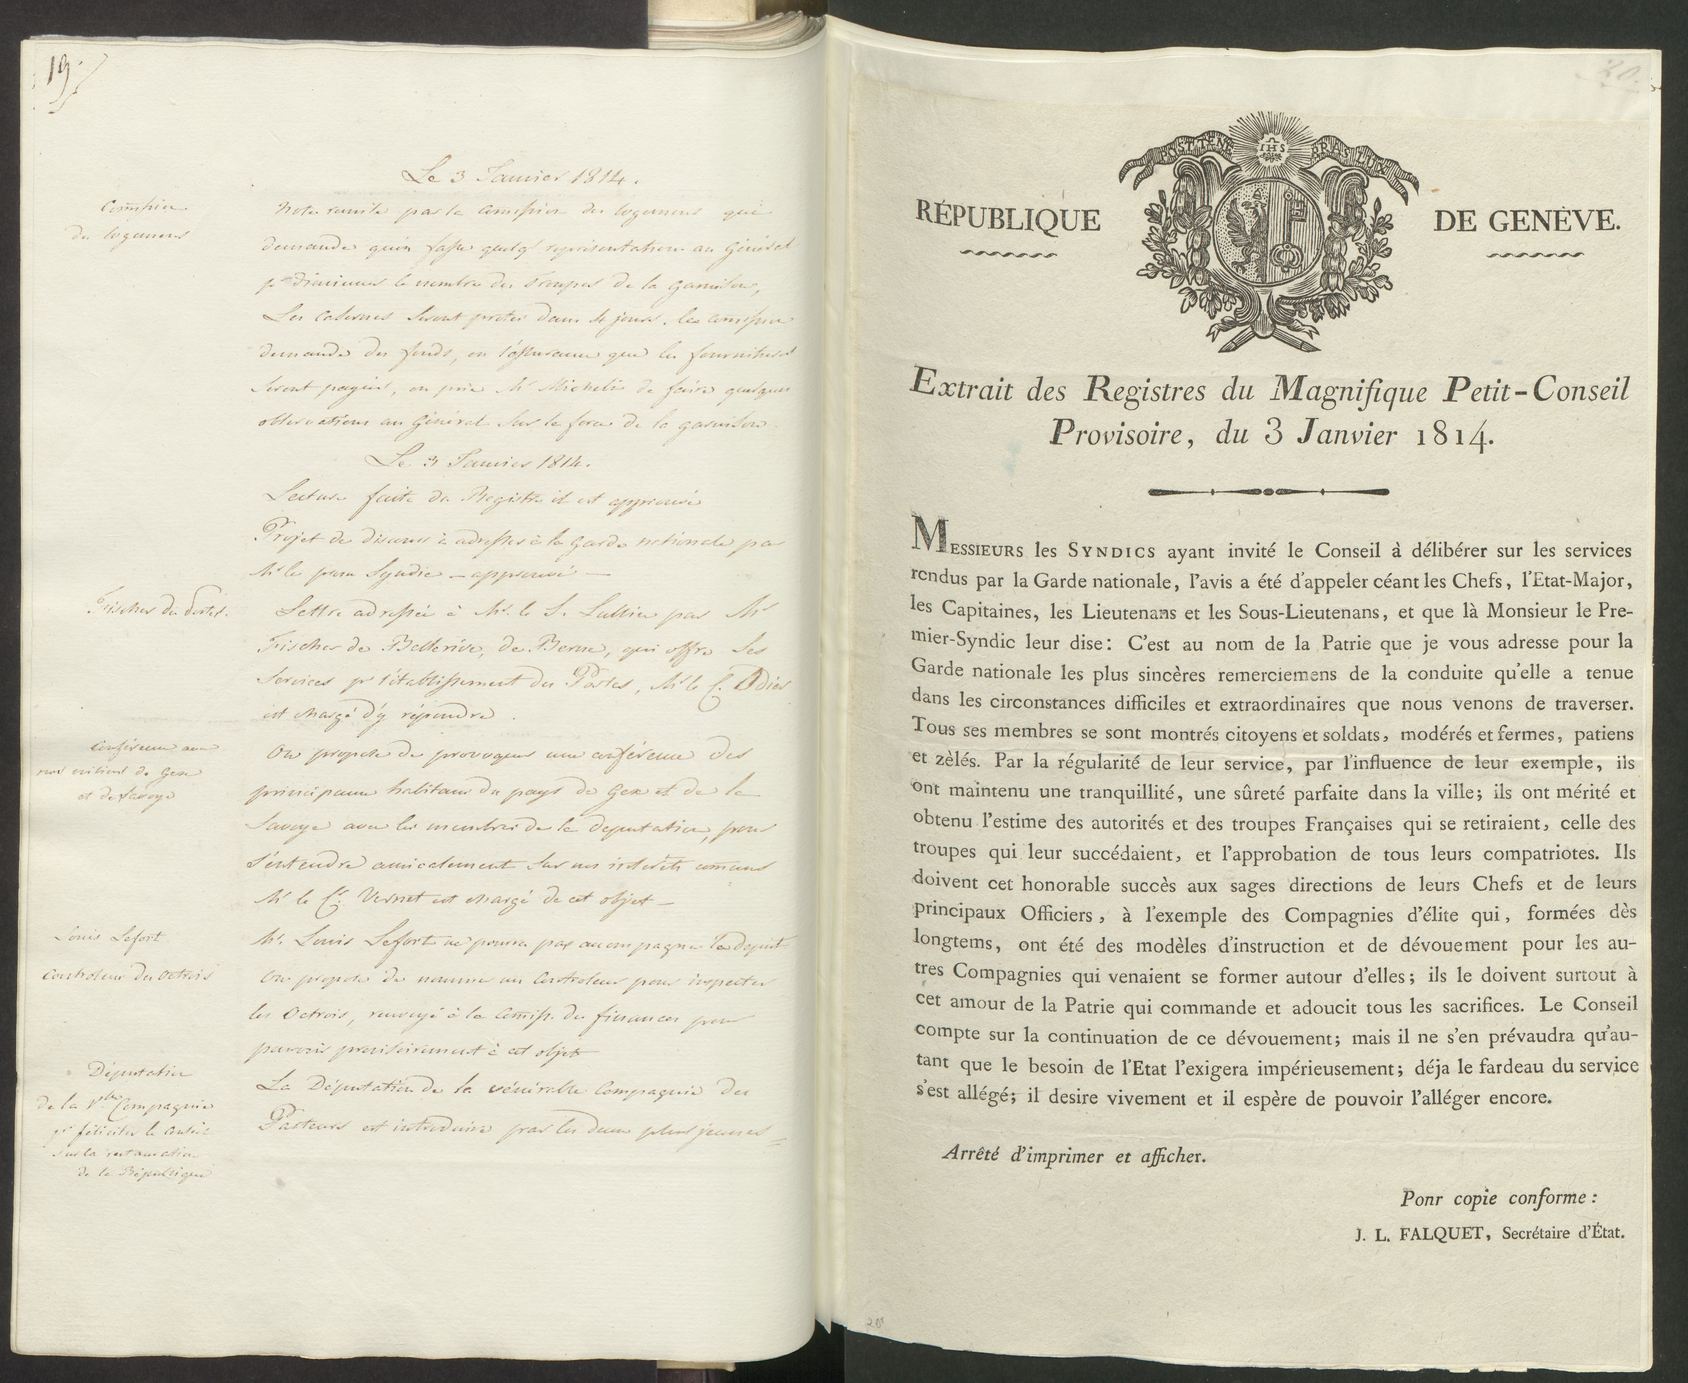 19.
Le 3 Janvier 1814.
Commission
des logemens
Note remise par la Commission des logemens qui
demande qu'on fasse quelq représentations au Général
pr diminuer le nombre des Troupes de la garnison,
Les Casernes seront pretes dans 4 jours. la Commission
demande des fonds, ou l'assurance que les fournitures
seront payées, on prie Mr Micheli de faire quelques
observations au Général sur la force de la garnison.
Le 3 Janvier 1814.
Lecture faite du Registre il est approuvé
Projet de discours à adresser à la Garde nationale par
Mr le prem Syndic — approuvé —
Fischer du Postes.
Lettre adressée à Mr. le S. Lullin par Mr
Fischer de Bellerive, de Berne, qui offre ses
services pr l'établissement des Postes, Mr le C. Odier
est chargé d'y répondre.
Conférence avec
nos voisins de Gex
et de Savoye
On propose de provoquer une conférence des
principaux habitans du pays de Gex et de la
Savoye avec les membres de la députation, pour
s'entendre amicalement sur nos interêts comuns
Mr le Cr. Vernet est chargé de cet objet —
Louis Lefort
Mr. Louis Lefort ne pourra pas accompagner la deput.
Controleur des Octrois
On propose de nommer un Controleur pour inspecter
les Octrois, renvoyé à la Commiss. des finances pour
pourvoir provisoirement à cet objet
Députation
de la Vble Compagnie
pr féliciter le Conseil
sur la restauration
de la République
La Députation de la vénérable Compagnie des
Pasteurs est introduite par les deux plus jeunes
20.
POST TENEBRAS LUX
IHS
RÉPUBLIQUE DE GENÈVE.
Extrait des Registres du Magnifique Petit-Conseil
Provisoire, du 3 Janvier 1814.
MESSIEURS les SYNDICS ayant invité le Conseil à délibérer sur les services
rendus par la Garde nationale, l'avis a été d'appeler céant les Chefs, l'Etat-Major,
les Capitaines, les Lieutenans et les Sous-Lieutenans, et que là Monsieur le Pre-
mier-Syndic leur dise: C'est au nom de la Patrie que je vous adresse pour la
Garde nationale les plus sincères remerciemens de la conduite qu'elle a tenue
dans les circonstances difficiles et extraordinaires que nous venons de traverser.
Tous ses membres se sont montrés citoyens et soldats, modérés et fermes, patiens
et zèlés. Par la régularité de leur service, par l'influence de leur exemple, ils
ont maintenu une tranquillité, une sûreté parfaite dans la ville; ils ont mérité et
obtenu l'estime des autorités et des troupes Françaises qui se retiraient, celle des
troupes qui leur succédaient, et l'approbation de tous leurs compatriotes. Ils
doivent cet honorable succès aux sages directions de leurs Chefs et de leurs
principaux Officiers, à l'exemple des Compagnies d'élite qui, formées dès
longtems, ont été des modèles d'instruction et de dévouement pour les au-
tres Compagnies qui venaient se former autour d'elles; ils le doivent surtout à
cet amour de la Patrie qui commande et adoucit tous les sacrifices. Le Conseil
compte sur la continuation de ce dévouement; mais il ne s'en prévaudra qu'au-
tant que le besoin de l'Etat l'exigera impérieusement; déja le fardeau du service
s'est allégé; il desire vivement et il espère de pouvoir l'alléger encore.
Arrêté d'imprimer et afficher.
Ponr copie conforme:
J. L. FALQUET, Secrétaire d'État.
20